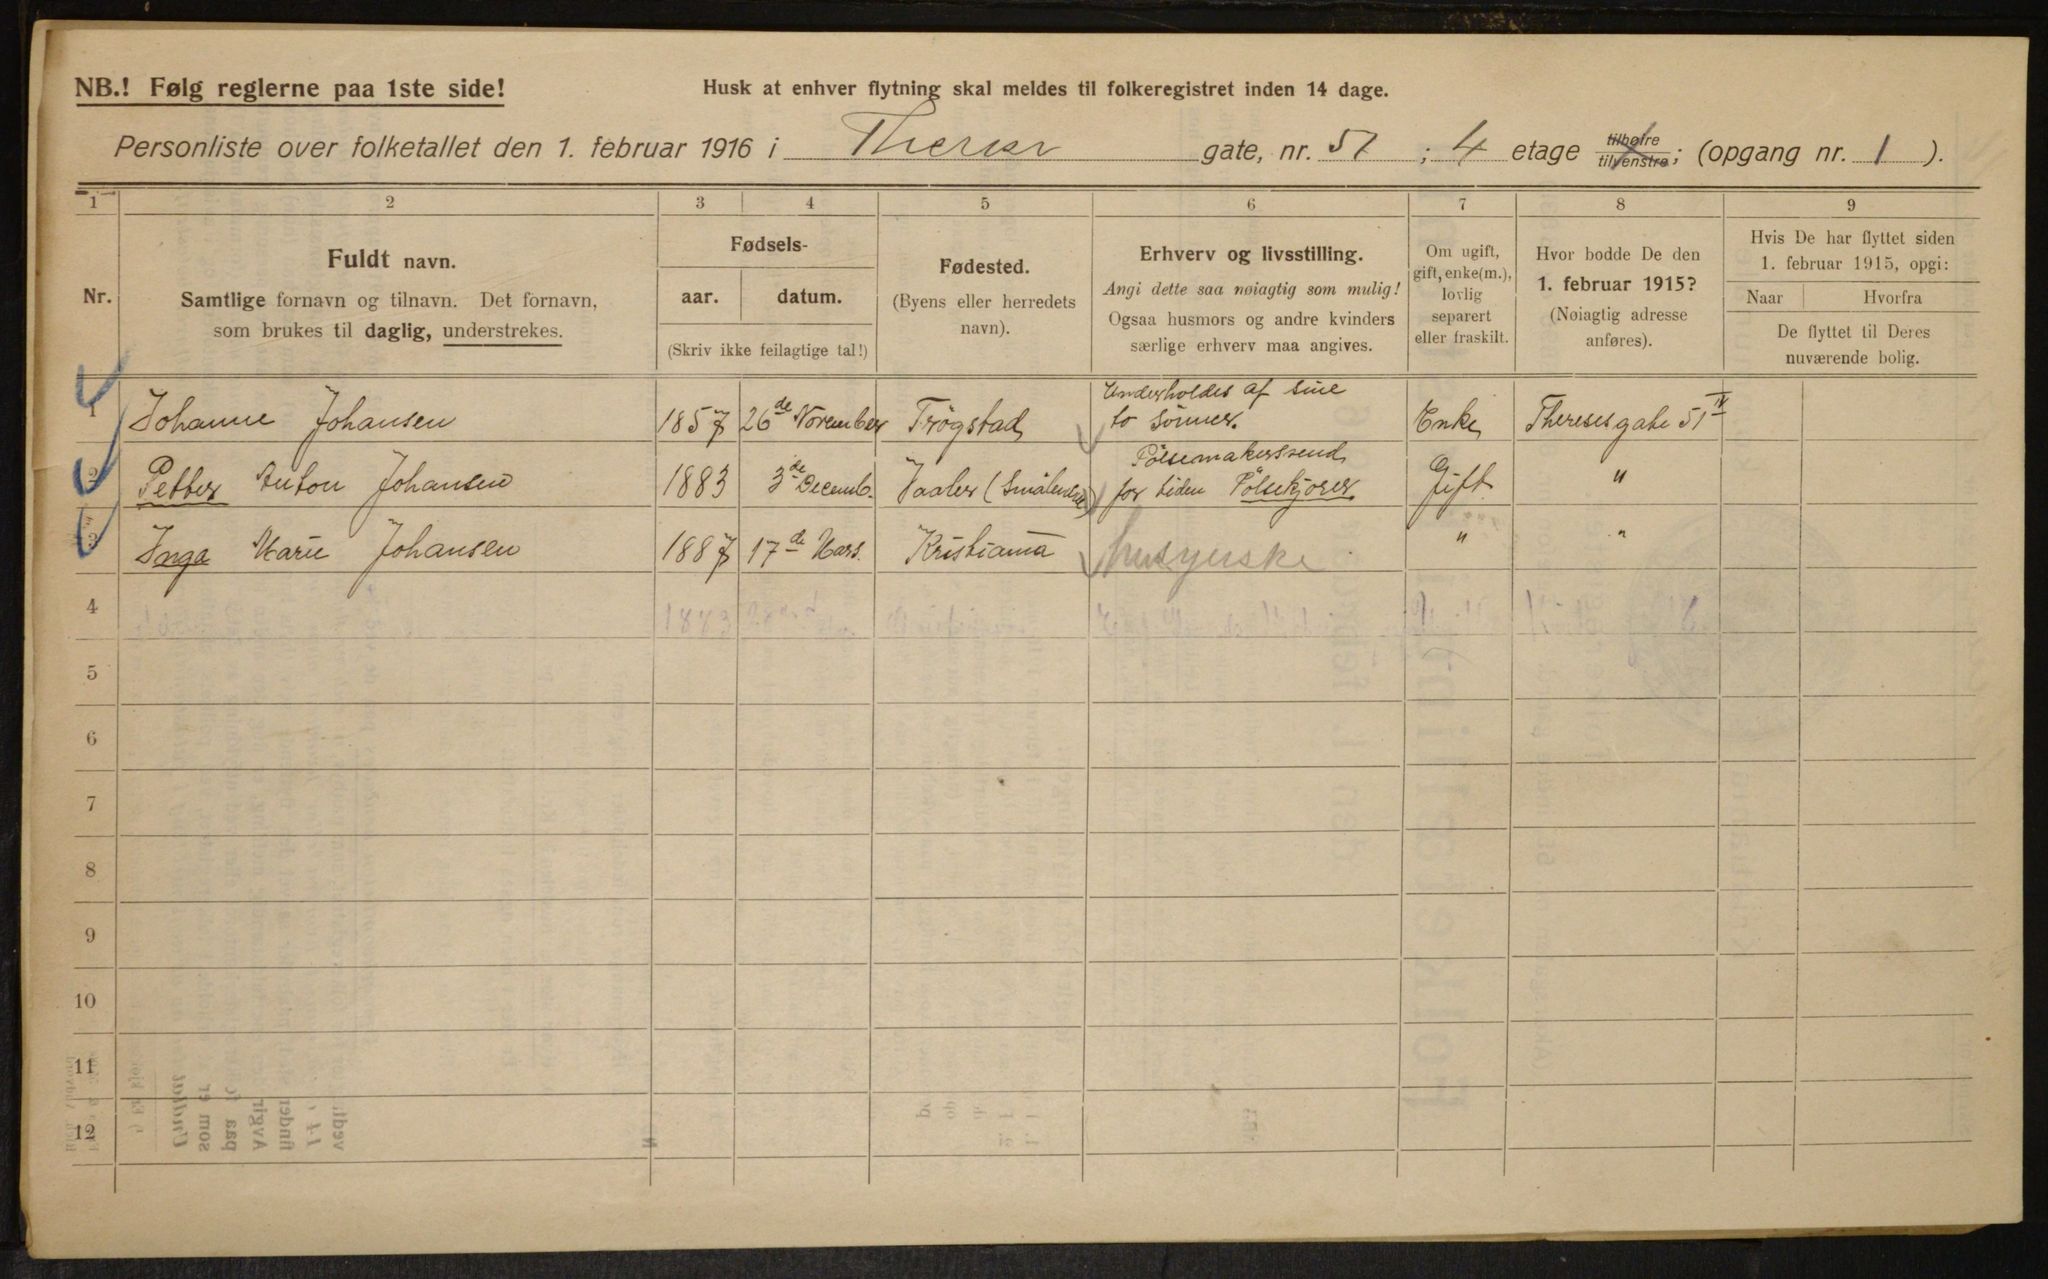 NB.! Følg reglerne paa 1ste side!
Husk at enhver flytning skal meldes til folkeregistret inden 14 dage.
Personliste over folketallet den 1. februar 1916 i Theresesgate, nr. 51; 4 etage tilhøire tilvenstre; (opgang nr. 1).
1 2 3 4 5 6 7 8 9
Nr.
Fuldt navn.
Samtlige fornavn og tilnavn. Det fornavn,
som brukes til daglig, understrekes.
Fødsels-
aar. datum.
(Skriv ikke feilagtige tal!)
Fødested.
(Byens eller herredets
navn).
Erhverv og livsstilling.
Angi dette saa nøiagtig som mulig!
Ogsaa husmors og andre kvinders
særlige erhverv maa angives.
Om ugift,
gift, enke(m.),
lovlig
separert
eller fraskilt.
Hvor bodde De den
1. februar 1915?
(Nøiagtig adresse
anføres).
Hvis De har flyttet siden
1. februar 1915, opgi:
Naar Hvorfra
De flyttet til Deres
nuværende bolig.
1 Johanne Johansen 1857 26de November Trøgstad Underholdes af sine to Sønner. Enke Theresesgate 51 IV
2 Petter Anton Johansen 1883 3de Decemb. Vaaler (Smålenene) Pølsemakersvend for tiden Pølsekjører Gift "
3 Inga Marie Johansen 1887 17de Mars. Kristiania husyrske " "
4
5
6
7
8
9
10
11
12